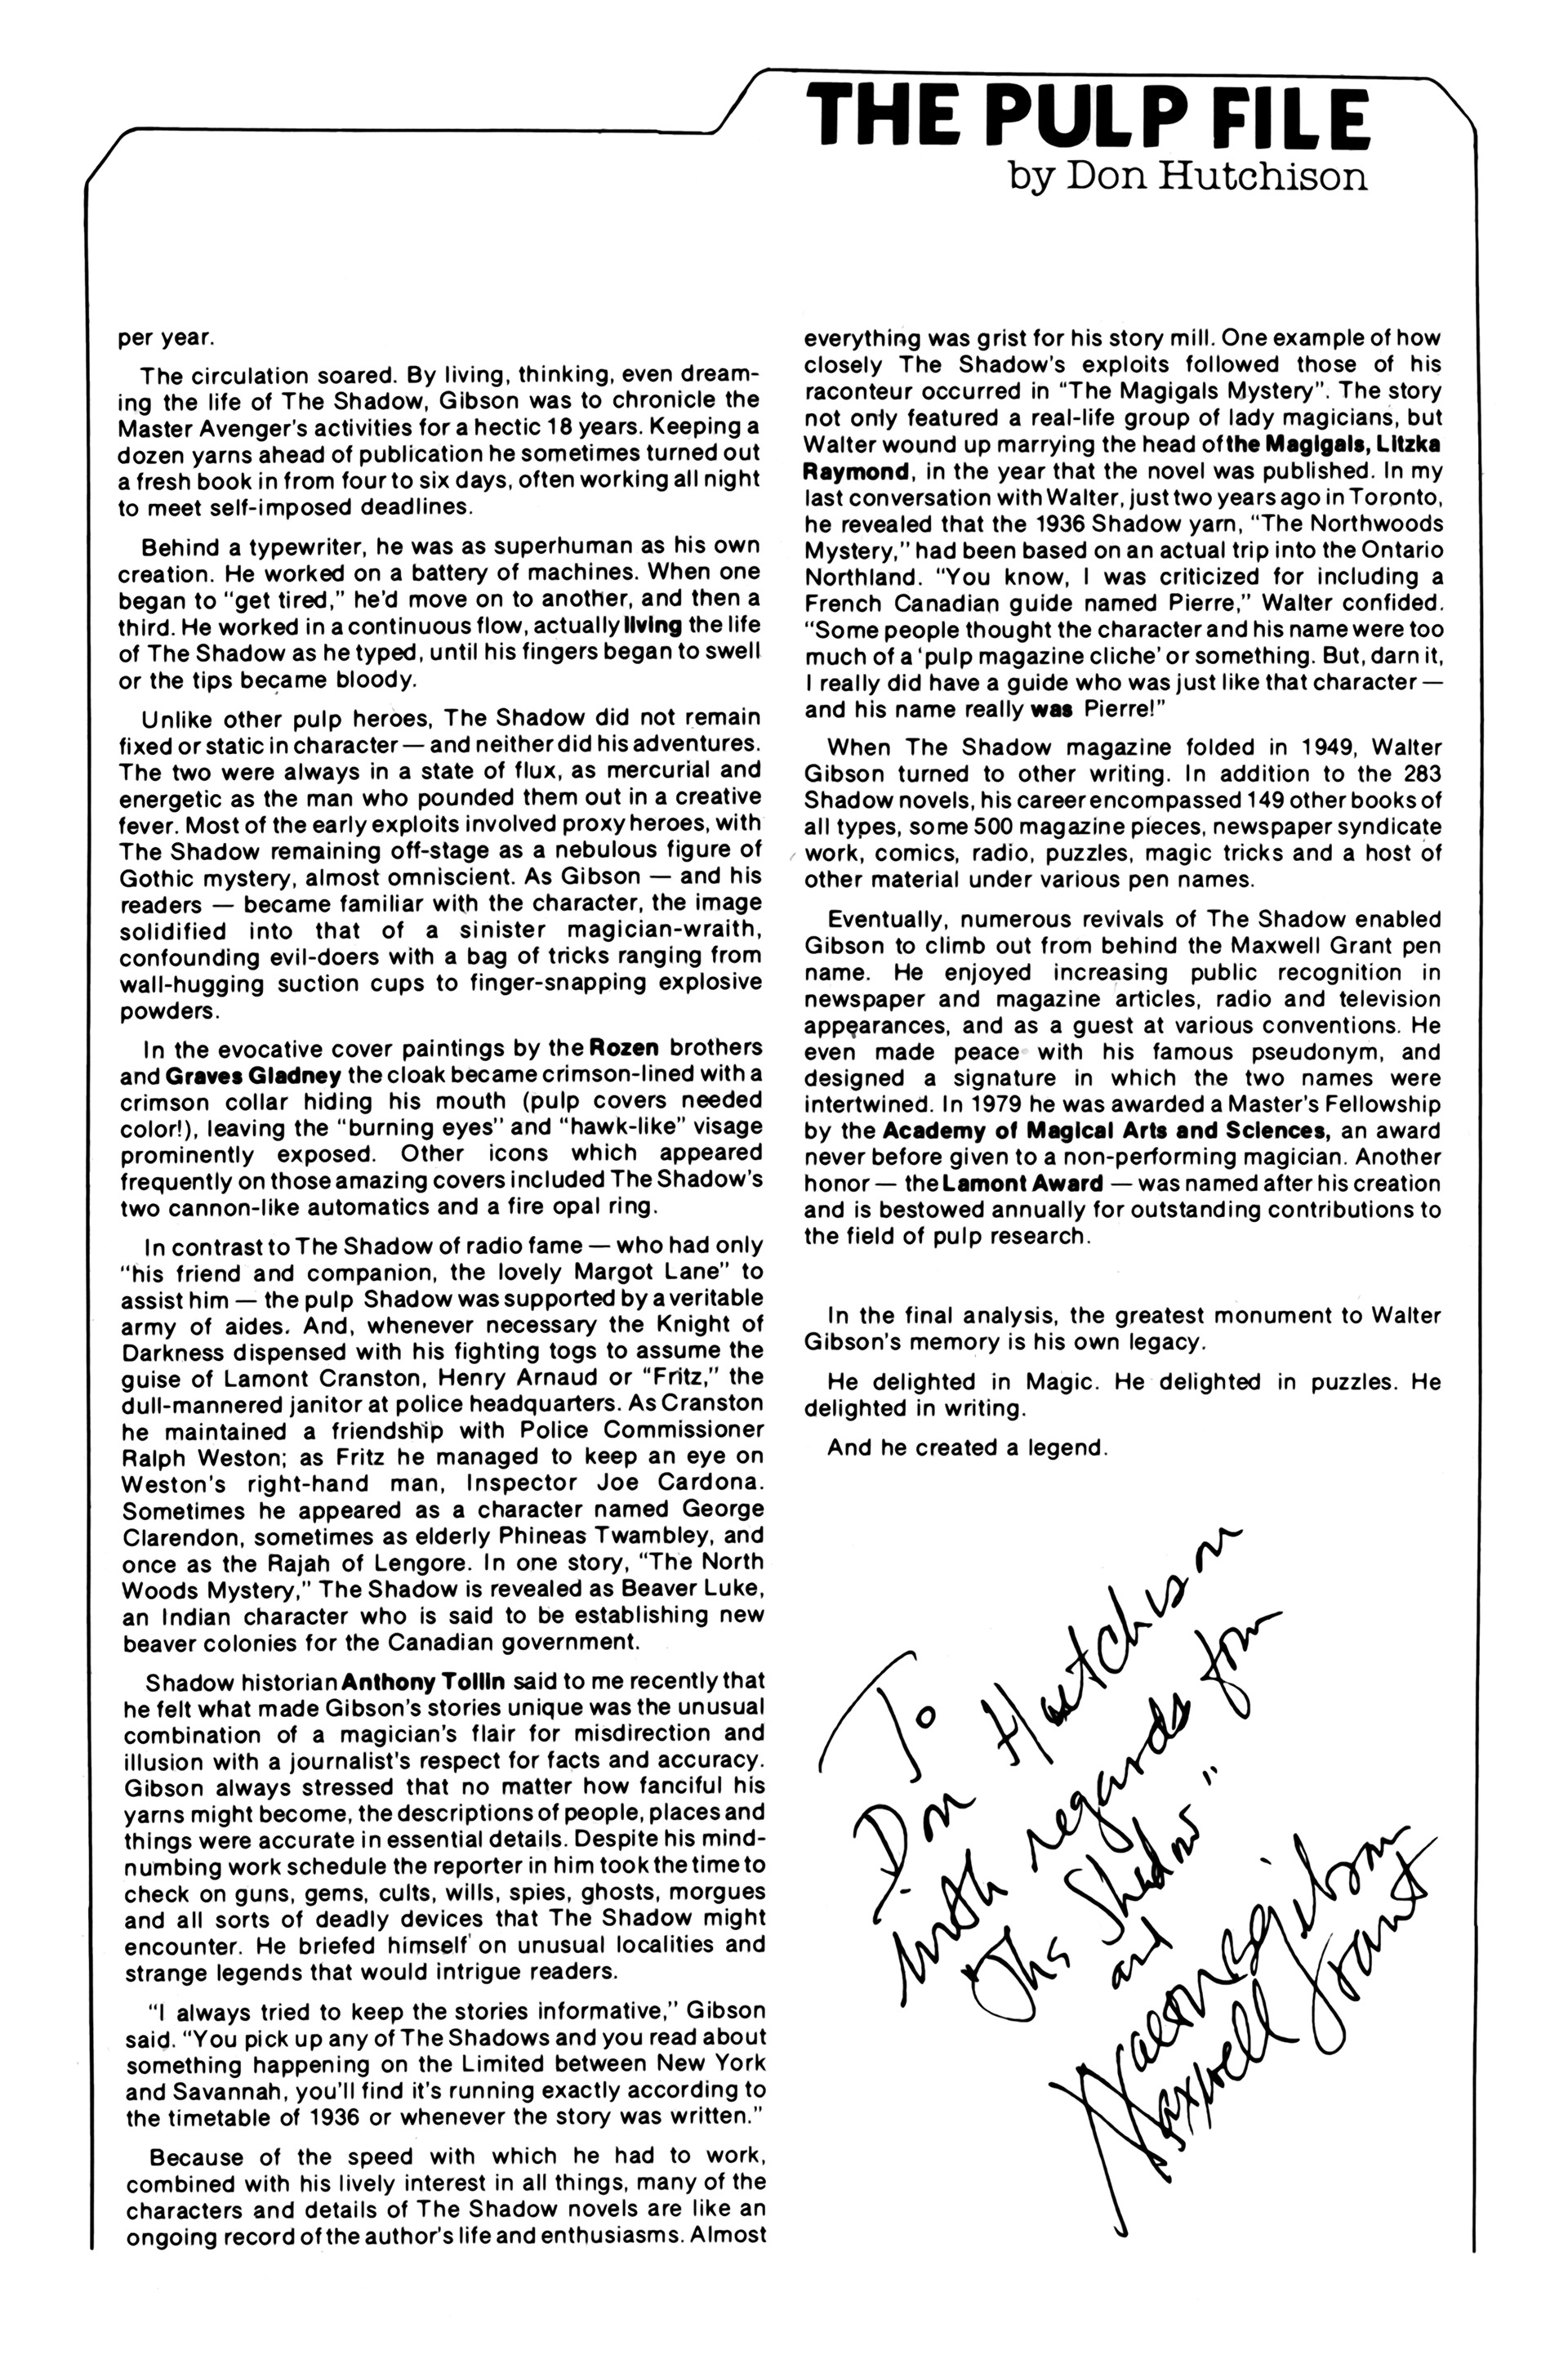 THE PULP FILE
by Don Hutchison
per year.
The circulation soared. By living, thinking, even dream-
ing the life of The Shadow, Gibson was to chronicle the
Master Avenger's activities for a hectic 18 years. Keeping a
dozen yarns ahead of publication he sometimes turned out
a fresh book in from four to six days, often working all night
to meet self-imposed deadlines.
Behind a typewriter, he was as superhuman as his own
creation. He worked on a battery of machines. When one
began to "get tired," he'd move on to another, and then a
third. He worked in a continuous flow, actually living the life
of The Shadow as he typed, until his fingers began to swell
or the tips became bloody.
Unlike other pulp heroes, The Shadow did not remain
fixed or static in character — and neither did his adventures.
The two were always in a state of flux, as mercurial and
energetic as the man who pounded them out in a creative
fever. Most of the early exploits involved proxy heroes, with
The Shadow remaining off-stage as a nebulous figure of
Gothic mystery, almost omniscient. As Gibson — and his
readers — became familiar with the character, the image
solidified into that of a sinister magician-wraith,
confounding evil-doers with a bag of tricks ranging from
wall-hugging suction cups to finger-snapping explosive
powders.
In the evocative cover paintings by the Rozen brothers
and Graves Gladney the cloak became crimson-lined with a
crimson collar hiding his mouth (pulp covers needed
color!), leaving the "burning eyes" and "hawk-like" visage
prominently exposed. Other icons which appeared
frequently on those amazing covers included The Shadow's
two cannon-like automatics and a fire opal ring.
In contrast to The Shadow of radio fame — who had only
"his friend and companion, the lovely Margot Lane" to
assist him — the pulp Shadow was supported by a veritable
army of aides. And, whenever necessary the Knight of
Darkness dispensed with his fighting togs to assume the
guise of Lamont Cranston, Henry Arnaud or "Fritz," the
dull-mannered janitor at police headquarters. As Cranston
he maintained a friendship with Police Commissioner
Ralph Weston; as Fritz he managed to keep an eye on
Weston's right-hand man, Inspector Joe Cardona.
Sometimes he appeared as a character named George
Clarendon, sometimes as elderly Phineas Twambley, and
once as the Rajah of Lengore. In one story, "The North
Woods Mystery," The Shadow is revealed as Beaver Luke,
an Indian character who is said to be establishing new
beaver colonies for the Canadian government.
Shadow historian Anthony Tollin said to me recently that
he felt what made Gibson's stories unique was the unusual
combination of a magician's flair for misdirection and
illusion with a journalist's respect for facts and accuracy.
Gibson always stressed that no matter how fanciful his
yarns might become, the descriptions of people, places and
things were accurate in essential details. Despite his mind-
numbing work schedule the reporter in him took the time to
check on guns, gems, cults, wills, spies, ghosts, morgues
and all sorts of deadly devices that The Shadow might
encounter. He briefed himself on unusual localities and
strange legends that would intrigue readers.
"I always tried to keep the stories informative," Gibson
said. "You pick up any of The Shadows and you read about
something happening on the Limited between New York
and Savannah, you'll find it's running exactly according to
the timetable of 1936 or whenever the story was written."
Because of the speed with which he had to work,
combined with his lively interest in all things, many of the
characters and details of The Shadow novels are like an
ongoing record of the author's life and enthusiasms. Almost
everything was grist for his story mill. One example of how
closely The Shadow's exploits followed those of his
raconteur occurred in "The Magigals Mystery". The story
not only featured a real-life group of lady magicians, but
Walter wound up marrying the head of the Magigals, Litzka
Raymond, in the year that the novel was published. In my
last conversation with Walter, just two years ago in Toronto,
he revealed that the 1936 Shadow yarn, "The Northwoods
Mystery," had been based on an actual trip into the Ontario
Northland. "You know, I was criticized for including a
French Canadian guide named Pierre," Walter confided.
"Some people thought the character and his name were too
much of a 'pulp magazine cliche' or something. But, darn it,
I really did have a guide who was just like that character —
and his name really was Pierre!"
When The Shadow magazine folded in 1949, Walter
Gibson turned to other writing. In addition to the 283
Shadow novels, his career encompassed 149 other books of
all types, some 500 magazine pieces, newspaper syndicate
work, comics, radio, puzzles, magic tricks and a host of
other material under various pen names.
Eventually, numerous revivals of The Shadow enabled
Gibson to climb out from behind the Maxwell Grant pen
name. He enjoyed increasing public recognition in
newspaper and magazine articles, radio and television
appearances, and as a guest at various conventions. He
even made peace with his famous pseudonym, and
designed a signature in which the two names were
intertwined. In 1979 he was awarded a Master's Fellowship
by the Academy of Magical Arts and Sciences, an award
never before given to a non-performing magician. Another
honor — the Lamont Award — was named after his creation
and is bestowed annually for outstanding contributions to
the field of pulp research.
In the final analysis, the greatest monument to Walter
Gibson's memory is his own legacy.
He delighted in Magic. He delighted in puzzles. He
delighted in writing.
And he created a legend.
To
Don Hutchison
with regards from
"The Shadow"
and
Walter B Gibson
Maxwell Grant